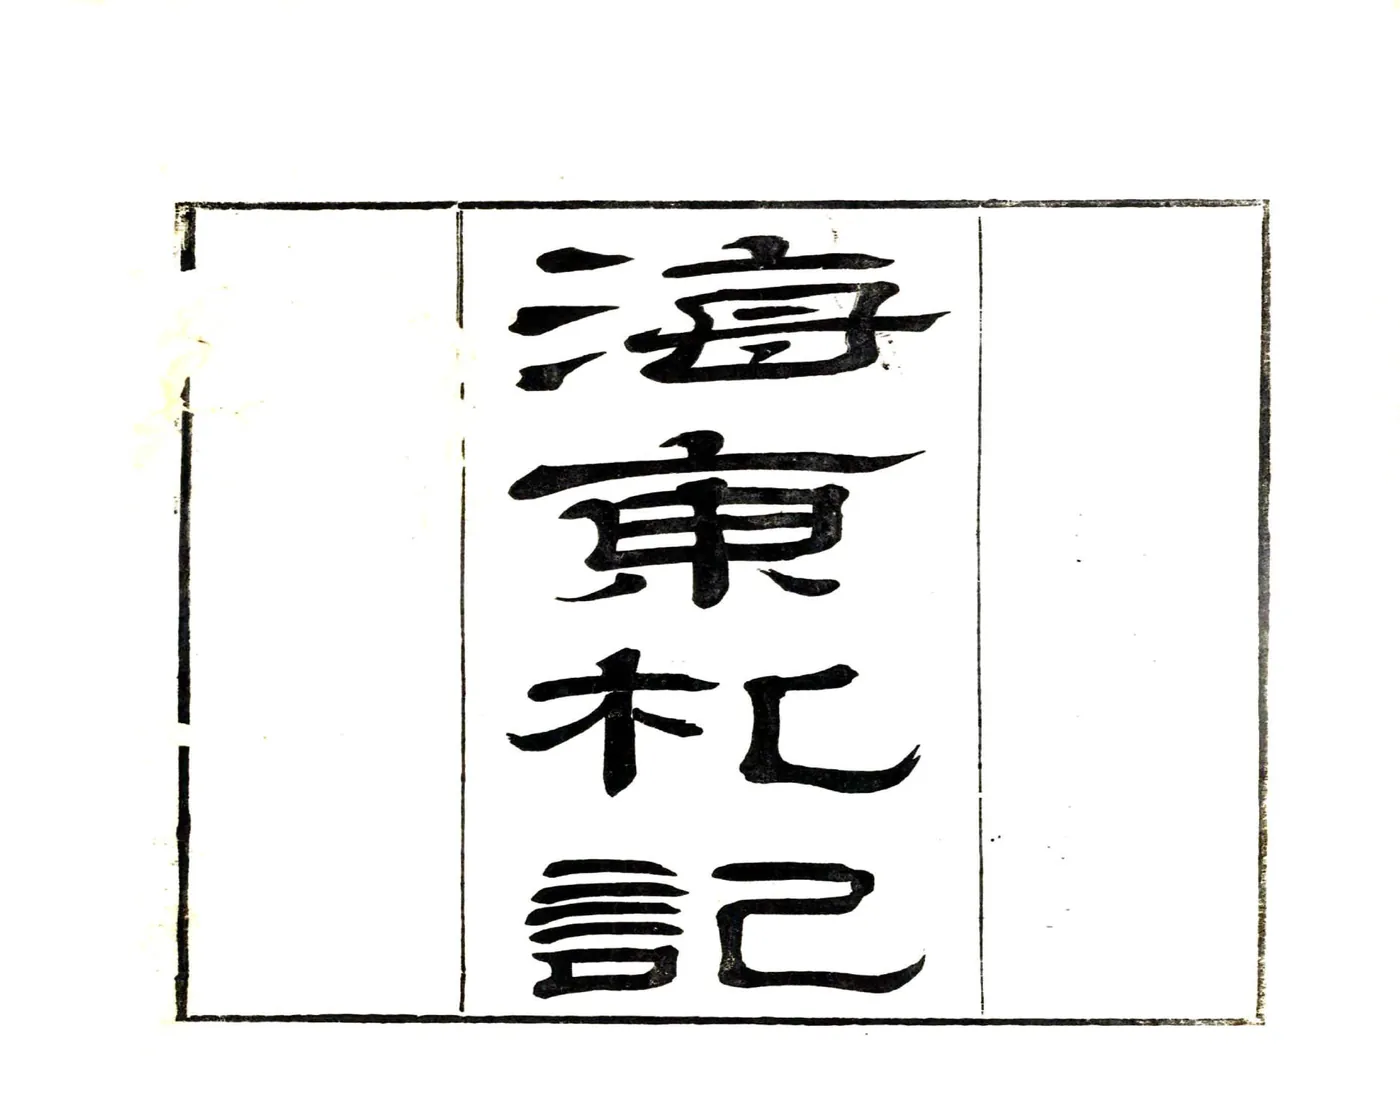 海東札記